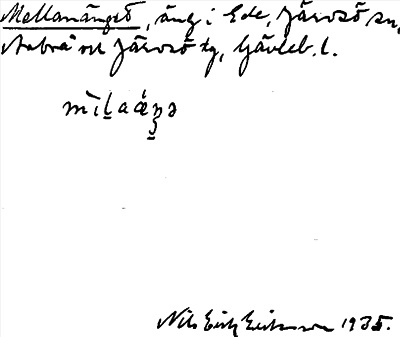 Mellanänget, äng i Ede, Järvsö sn,
Arbrå och Järvsö tg, Gävleb. l.
mìlaáŋə
Nils Erik Eriksson 1935.